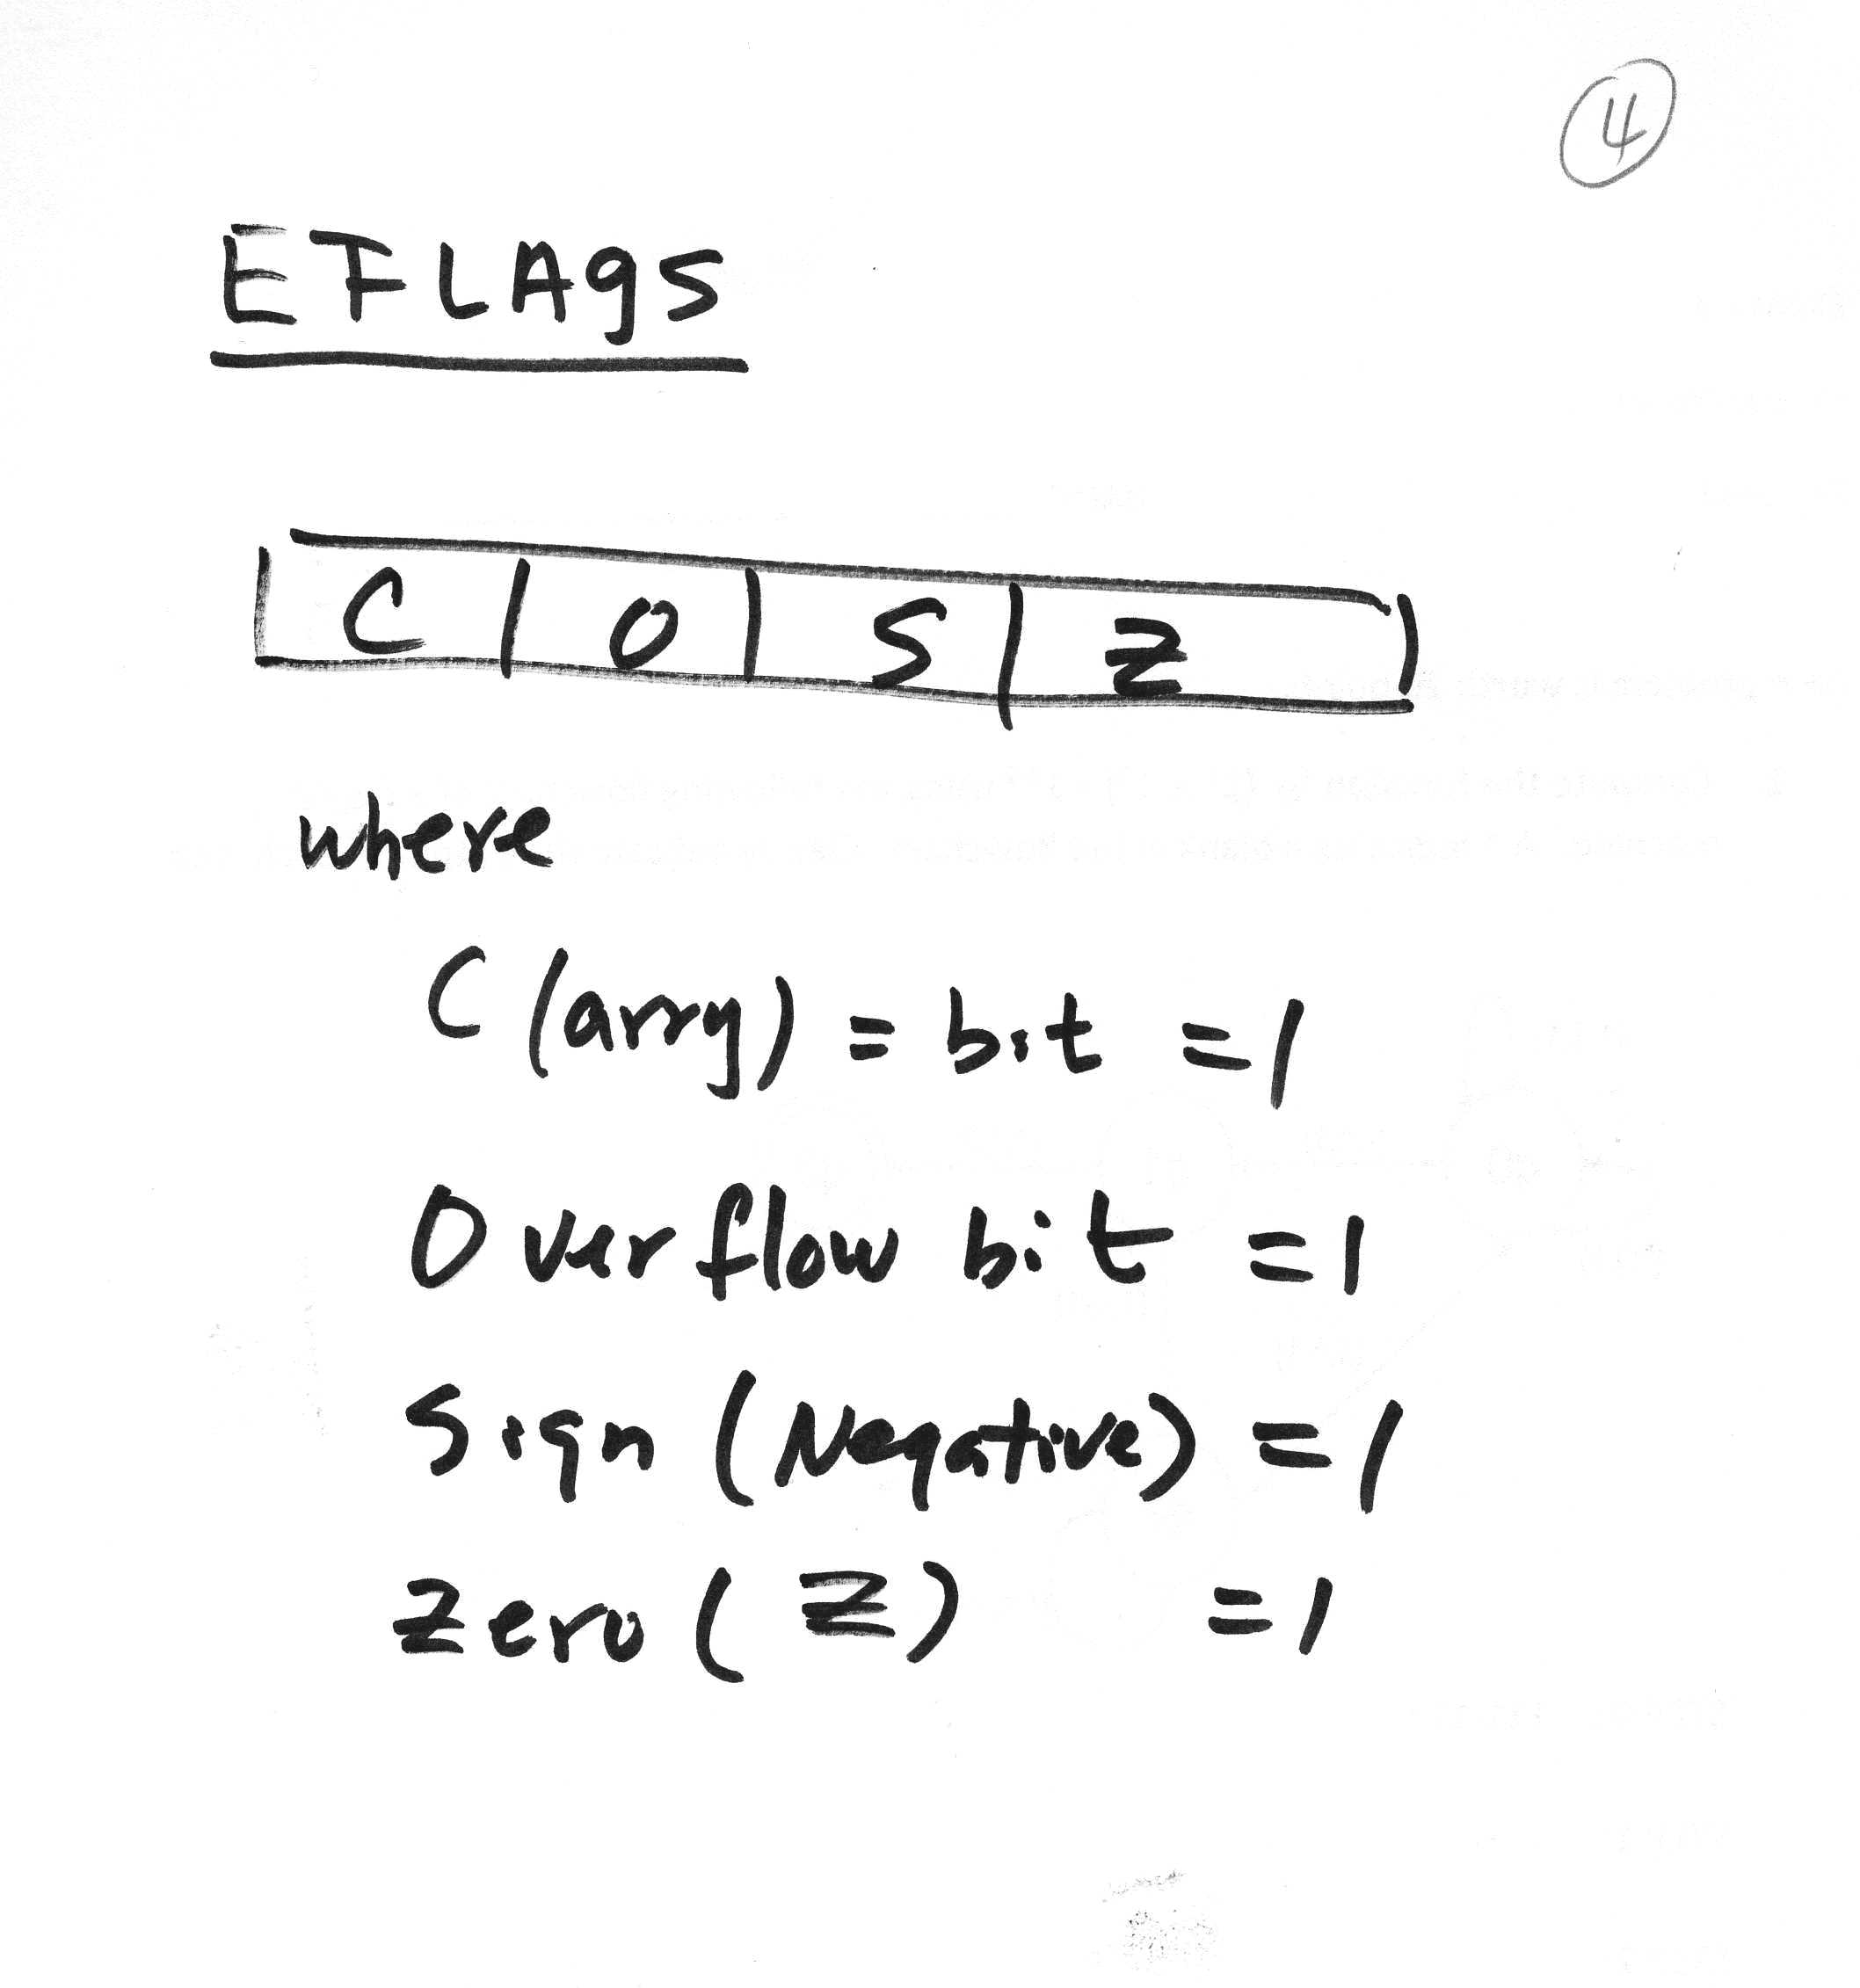 4
EFLAgS
C | O | S | Z
where
C (arry) = bit = 1
Overflow bit = 1
Sign (Negative) = 1
Zero (Z) = 1